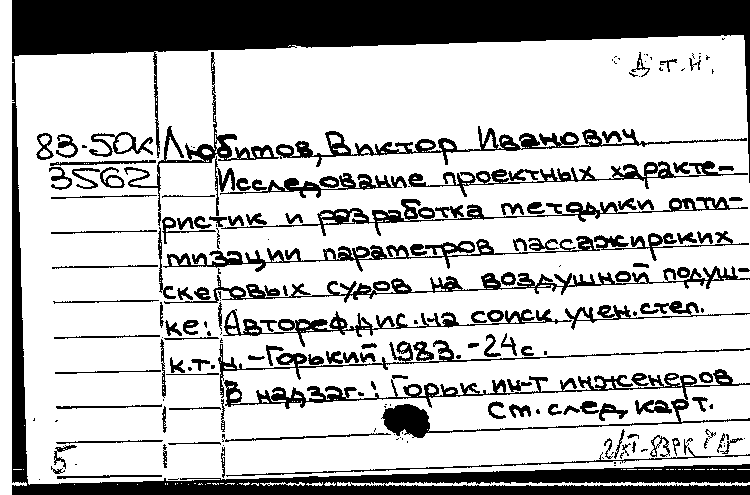 Д т.н.
83-50к Любитов, Виктор Иванович.
3562 Исследование проектных характе-
ристик и разработка методики опти-
мизации параметров пассажирских
скеговых судов на воздушной подуш-
ке: Автореф.дис.на соиск.учен.степ.
к.т.н.-Горький,1983.-24с.
В надзаг.: Горьк.ин-т инженеров
См.след,карт.
5
2/XI-83